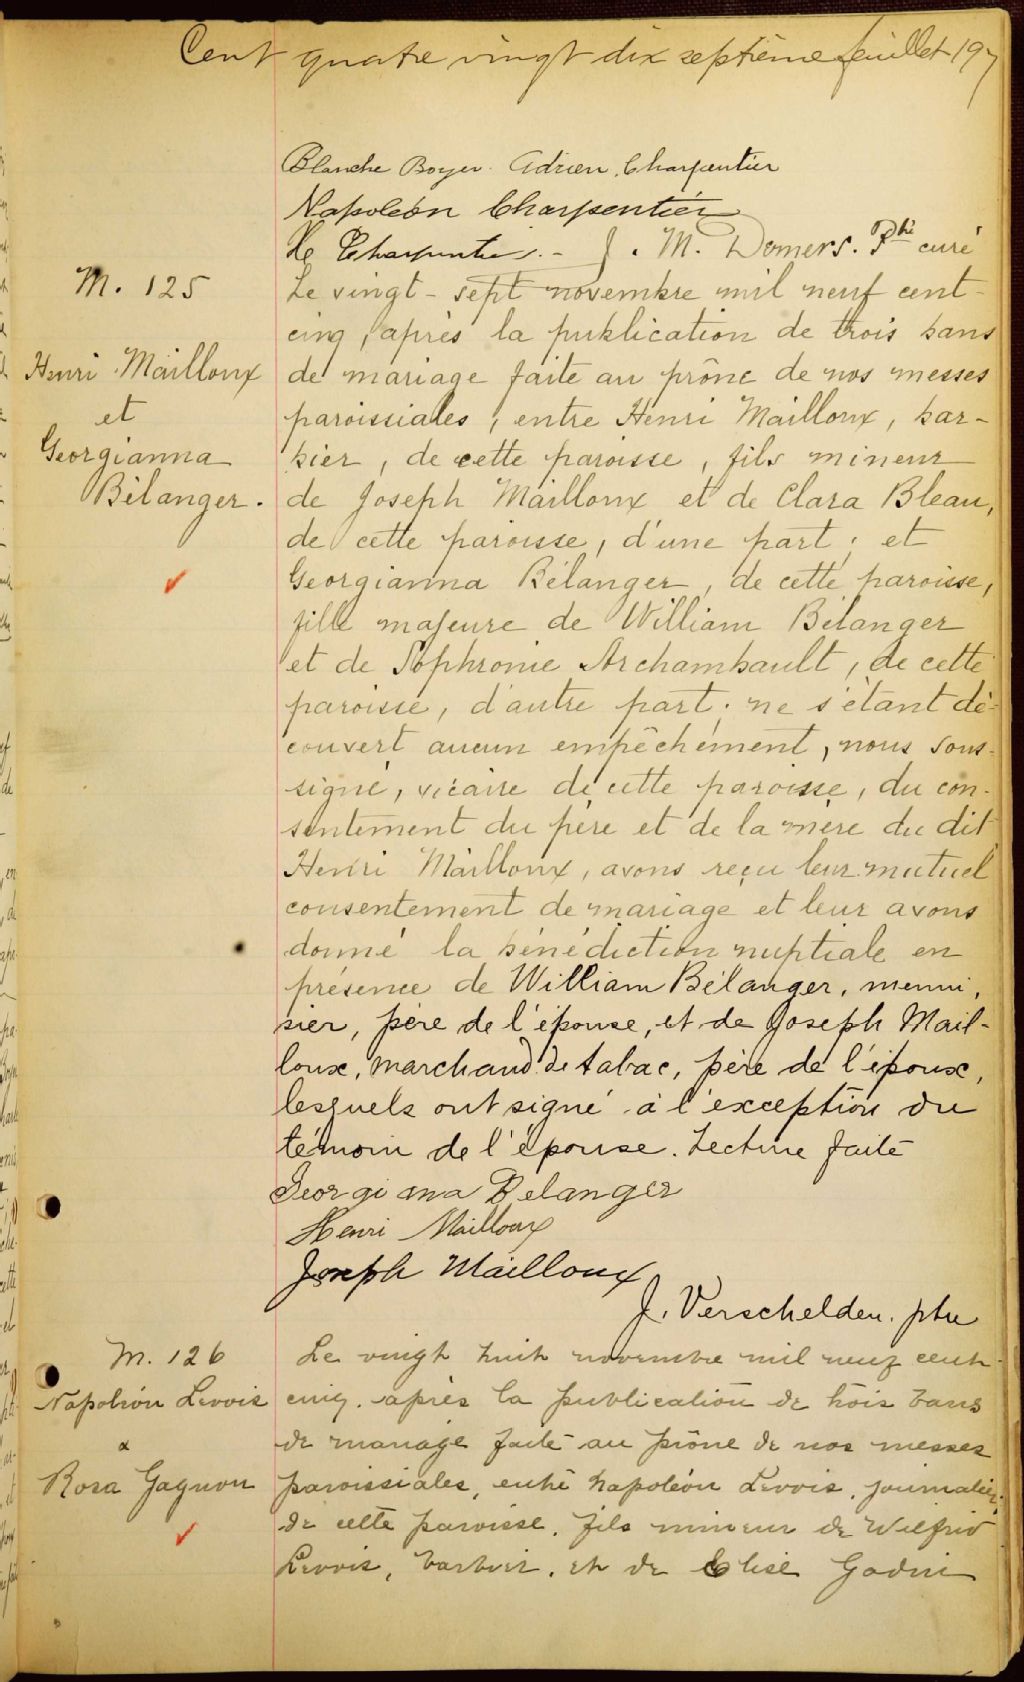 Cent quatre vingt dix septième feuillet 197
Blanche Boyer. Adrien Charpentier
Napoléon Charpentier
Charpentier. - J. M. Demers. Ptre curé
M. 125
Henri Mailloux
et
Georgianna
Bélanger.
Le vingt-sept novembre mil neuf cent
cinq, après la publication de trois bans
de mariage faite au prône de nos messes
paroissiales, entre Henri Mailloux, bar-
bier, de cette paroisse, fils mineur
de Joseph Mailloux et de Clara Bleau,
de cette paroisse, d'une part; et
Georgianna Bélanger, de cette paroisse,
fille majeure de William Bélanger
et de Sophronie Archambault, de cette
paroisse, d'autre part; ne s'étant dé-
couvert aucun empêchement, nous sous-
signé, vicaire de cette paroisse, du con-
sentement du père et de la mère du dit
Henri Mailloux, avons reçu leur mutuel
consentement de mariage et leur avons
donné la bénédiction nuptiale en
présence de William Bélanger, menui-
sier, père de l'épouse, et de Joseph Mail-
loux, marchand de tabac, père de l'époux,
lesquels ont signé à l'exception du
témoin de l'épouse. Lecture faite
Georgiana Belanger
Henri Mailloux
Joseph Mailloux
J. Verschelden. ptre
M. 126
Napoléon Levois
&
Rosa Gagnon
Le vingt huit novembre mil neuf cent
cinq. après la publication de trois bans
de mariage faite au prône de nos messes
paroissiales, entre Napoléon Levois, journalier,
de cette paroisse, fils mineur de Wilfrid
Levois, barbier, et de Elise Godin